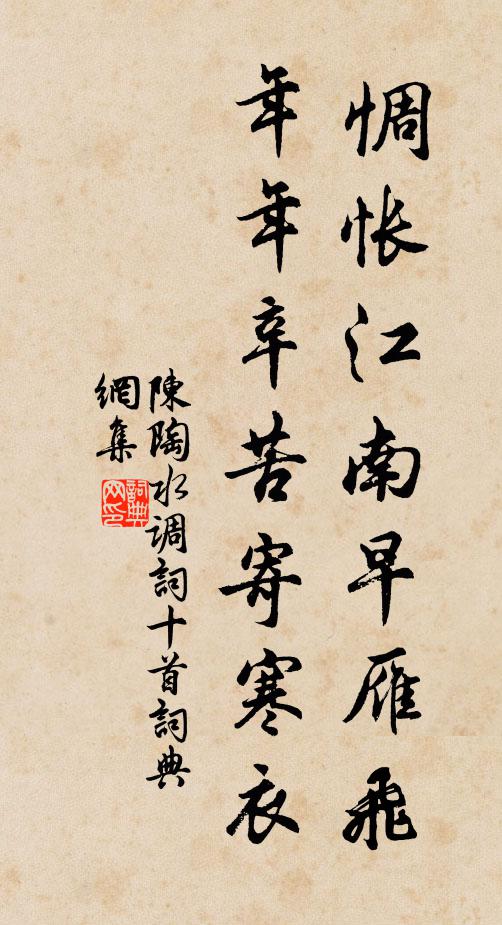 惆怅江南早雁飛
年年辛苦寄寒衣
陳陶水调詞十首詞典
網集
詞典
网印